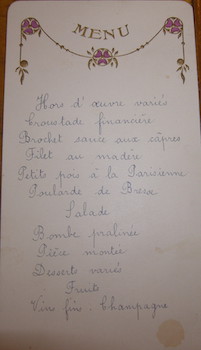 MENU
Hors d'œuvre variés
Croustade financière
Brochet sauce aux câpres
Filet au madère
Petits pois à la Parisienne
Poularde de Bresse
Salade
Bombe pralinée
Pièce montée
Desserts variés
Fruits
Vins fins : Champagne